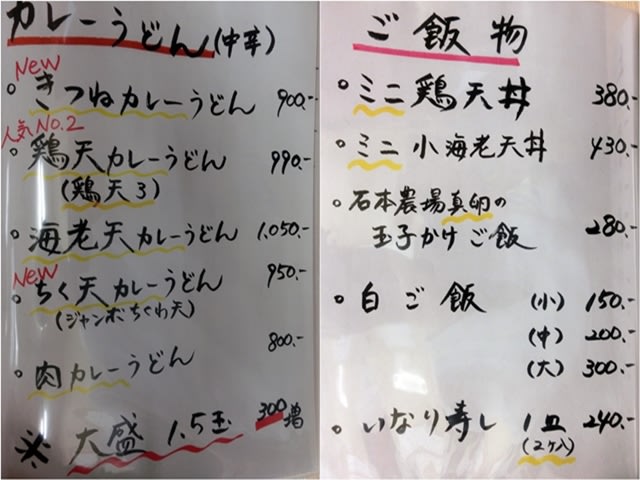 カレーうどん(中辛)
New
。きつねカレーうどん 900.-
人気No.2
。鶏天カレーうどん 990.-
(鶏天3)
。海老天カレーうどん 1.050.-
New
。ちく天カレーうどん 950.-
(ジャンボちくわ天)
。肉カレーうどん 800.-
※ 大盛 1.5玉 300増
ご飯物
。ミニ鶏天丼 380.-
。ミニ小海老天丼 430.-
。石本農場真卵の
玉子かけご飯 280.-
。白ご飯 (小) 150.-
(中) 200.-
(大) 300.-
。いなり寿し 1皿 240.-
(2ヶ入)